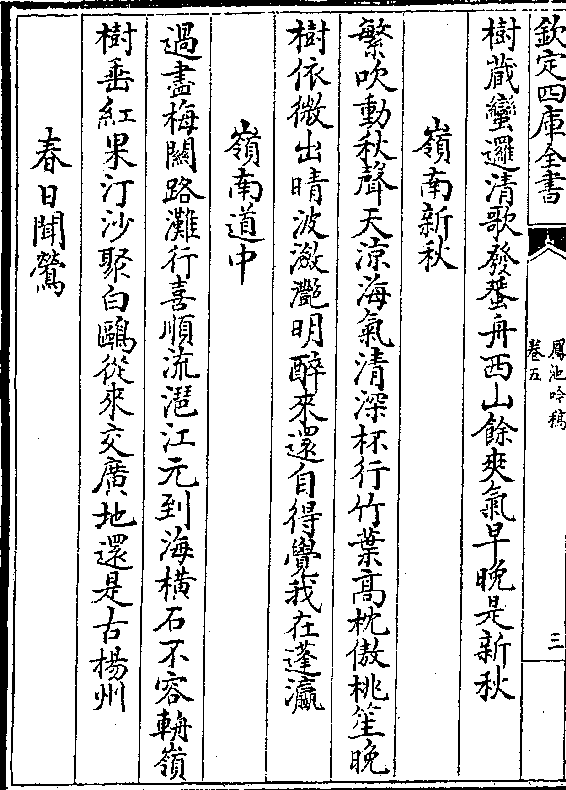 欽定四庫全書
鳳池吟稿
卷五
三
樹蔵蠻邏清歌發蜑舟西山餘爽氣早晚是新秋
嶺南新秋
繁吹動秋聲天涼海氣清深杯行竹葉高枕傲桃笙晚
樹依微出晴波潋灔明醉來還自得覺我在蓬瀛
嶺南道中
過盡梅關路灘行喜順流湓江元到海橫石不容輈嶺
樹垂紅果汀沙聚白鷗從來交廣地還是古楊州
春日聞鶯